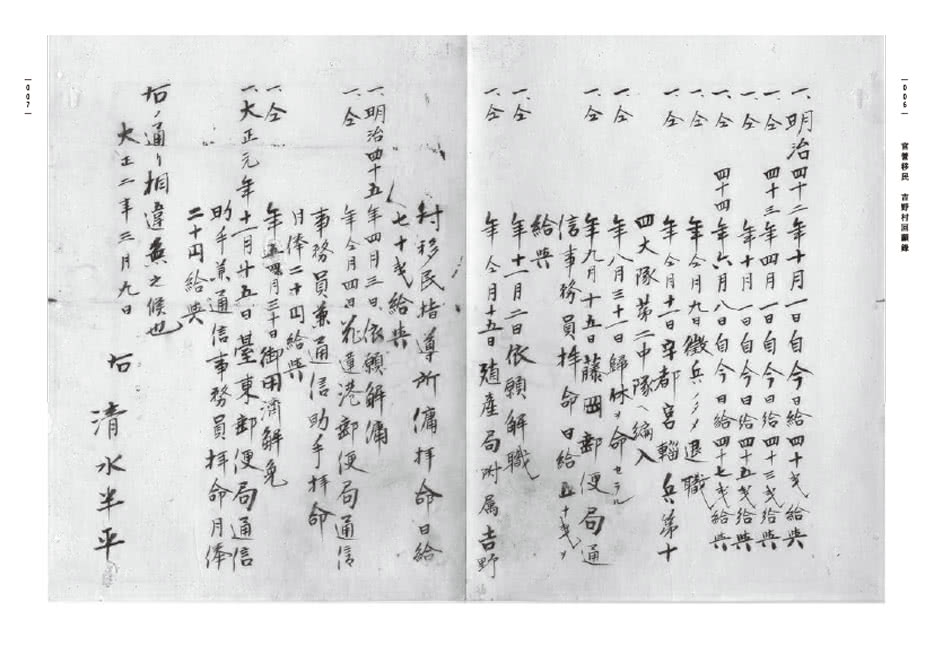 006
官營移民 吉野村回顧錄
一、明治四十二年十月一日自今日給四十戔給與
一、仝 四十三年四月一日自今日給四十三戔給與
一、仝 年十月一日自今日給四十五戔給與
一、仝 四十四年六月八日自今日給四十七戔給與
一、仝 年仝月九日徵兵ノタメ退職
一、仝 年仝月十二日宇都宮輜兵第十
四大隊第二中隊ヘ編入
一、仝 年八月三十一日歸休ヲ命セラル
一、仝 年九月十五日藤岡郵便局通
信事務員拜命日給五十戔ヲ
給與
一、仝 年十一月二日依願解職
一、仝 年仝月十五日殖產局附属吉野
村移民指導所傭拜命日給
七十戔給與
一、明治四十五年四月三日依願解傭
一、仝 年仝月四日花蓮港郵便局通信
事務員兼通信助手拜命
月俸二十円給與
一、仝 年四月三十日御用濟解免
一、大正元年十一月廿五日臺東郵便局通信
助手兼通信事務員拜命月俸
二十円給與
右ノ通リ相違無之候也
大正二年三月九日
右 清水半平
007